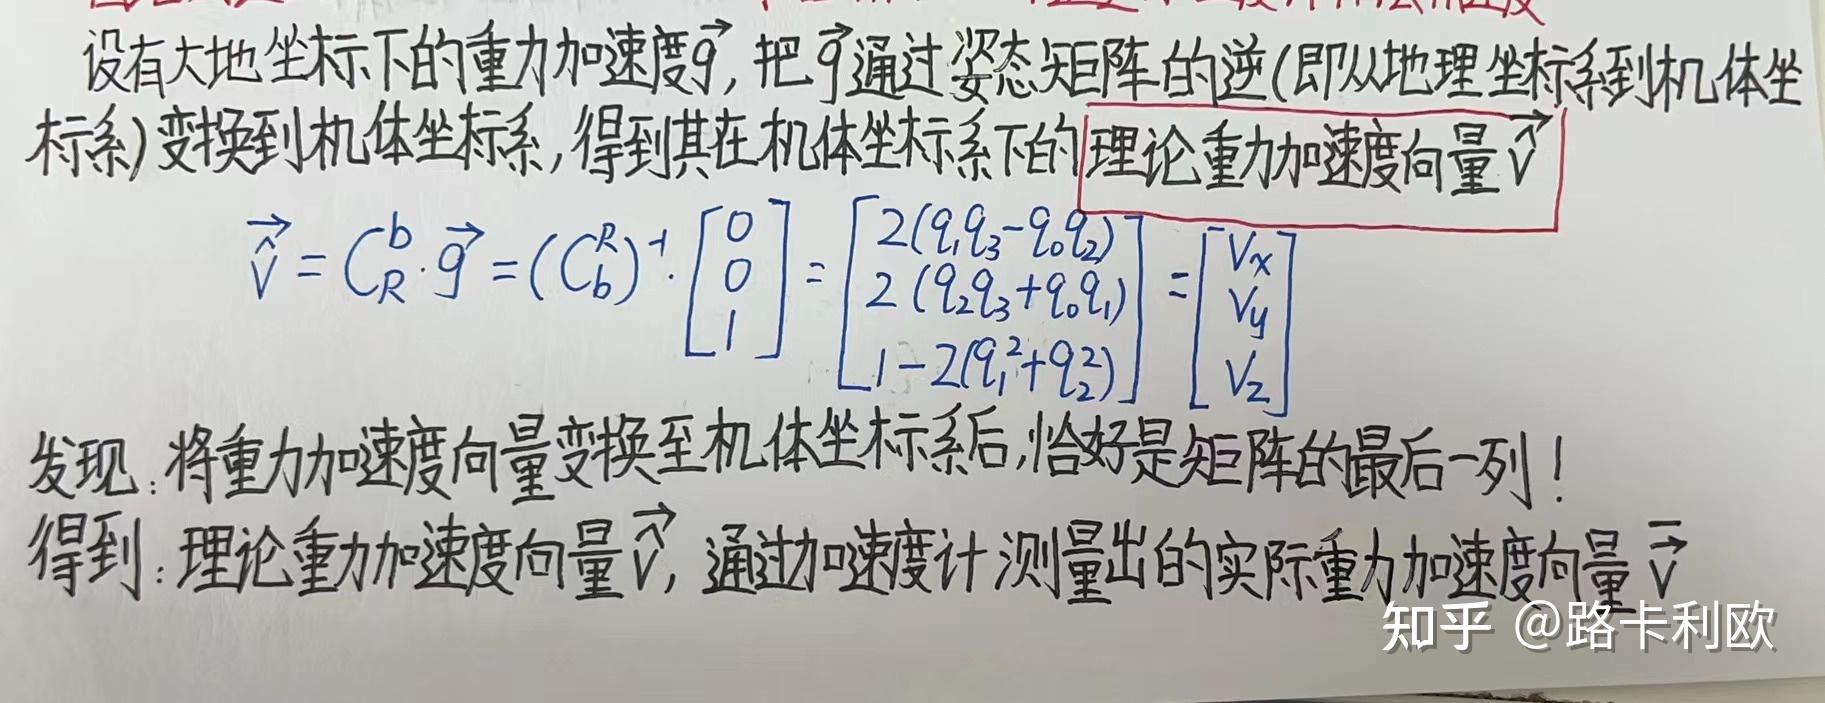 设有大地坐标下的重力加速度g⃗, 把g⃗通过姿态矩阵的逆(即从地理坐标系到机体坐
标系)变换到机体坐标系,得到其在机体坐标系下的理论重力加速度向量v̂⃗
v̂⃗ = C_R^b · g⃗ = (C_b^R)^-1 · [0 0 1] = [2(q₁q₃-q₀q₂) 2(q₂q₃+q₀q₁) 1-2(q₁²+q₂²)] = [Vx Vy Vz]
发现:将重力加速度向量变换至机体坐标系后,恰好是矩阵的最后一列!
得到:理论重力加速度向量v̂⃗, 通过加速度计测量出的实际重力加速度向量v̄⃗
知乎 @路卡利欧